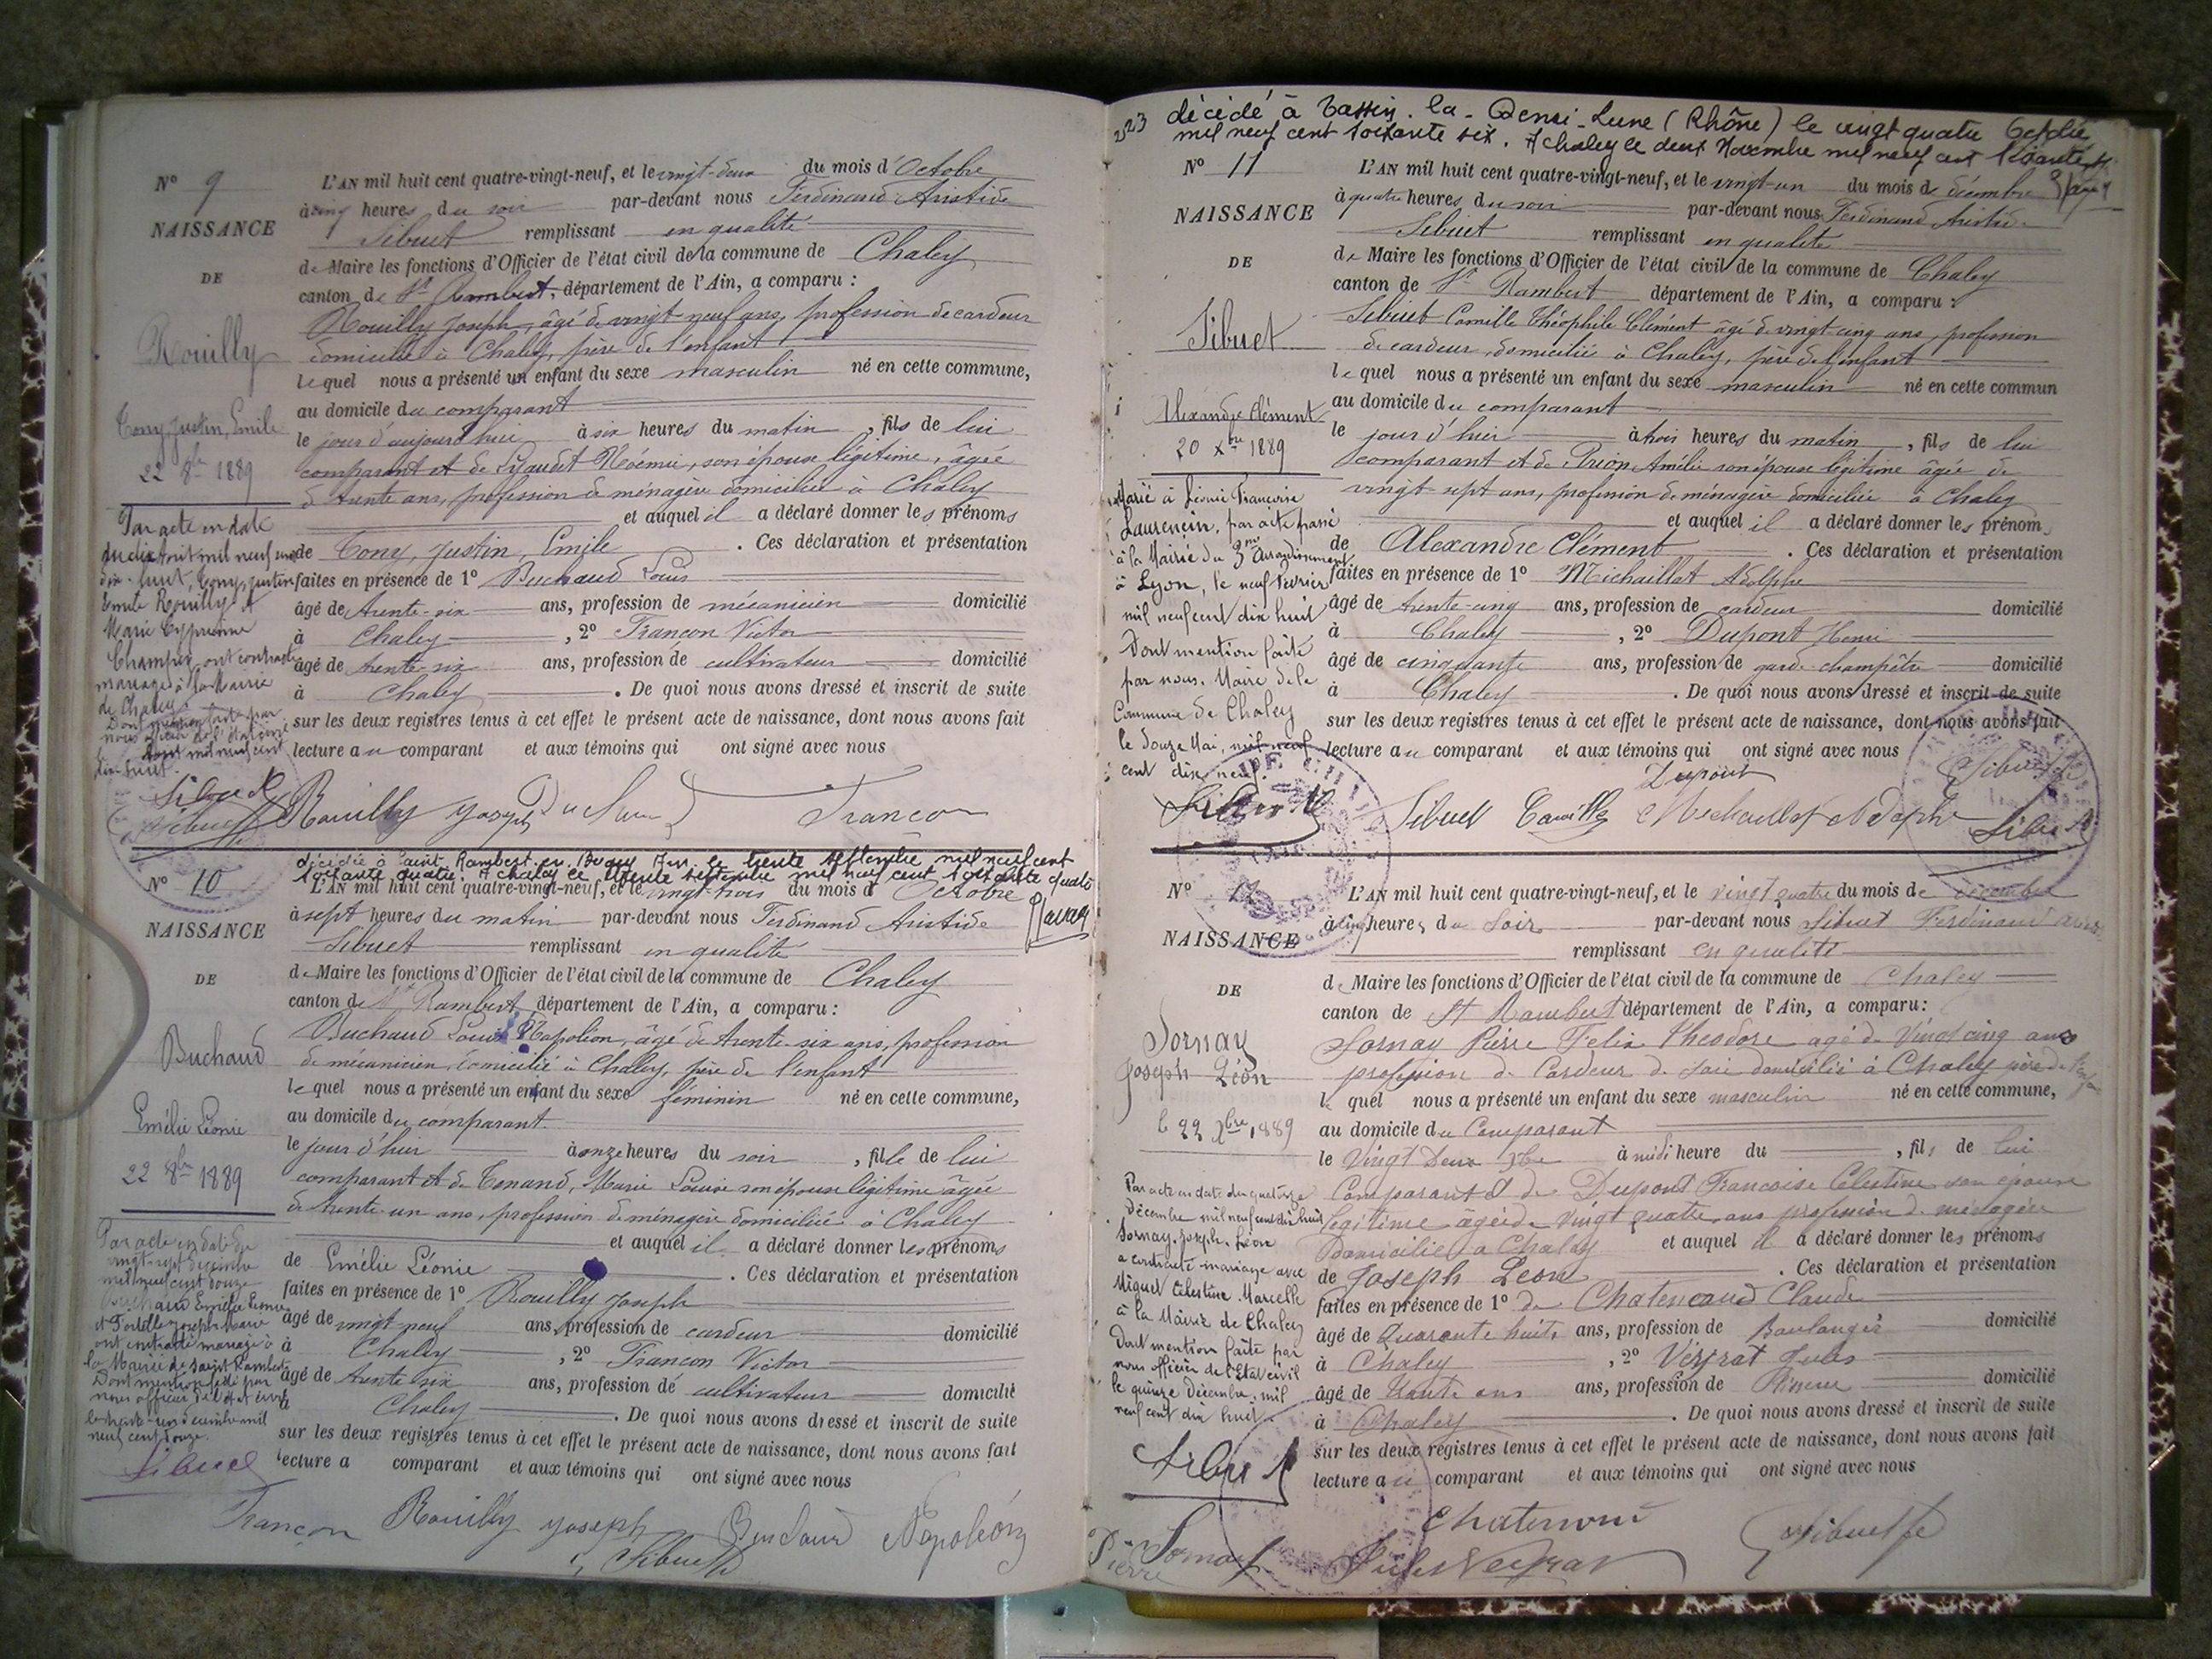 Nº 9
NAISSANCE
DE
Rouilly
Tony, Justin, Emile
22 8bre 1889
Par acte en date
du dix Août mil neuf cent
dix-huit, Tony, Justin
Emile Rouilly et
Marie Cyprienne
Champier ont contracté
mariage à la Mairie
de Chaley.
Dont mention faite par
nous officier de l'état civil
Août mil neuf cent
dix huit.
Sibuet
L'AN mil huit cent quatre-vingt-neuf, et le vingt-deux du mois d'Octobre
à cinq heures du soir par-devant nous Ferdinand Aristide
Sibuet remplissant en qualité
de Maire les fonctions d'Officier de l'état civil de la commune de Chaley
canton de St Rambert, département de l'Ain, a comparu :
Rouilly Joseph, âgé de vingt neuf ans, profession de cardeur
domicilié à Chaley, père de l'enfant
lequel nous a présenté un enfant du sexe masculin né en cette commune,
au domicile du comparant
le jour d'aujourd'hui à six heures du matin, fils de lui
comparant et de Noémie, son épouse légitime, âgée
de trente ans, profession de ménagère domiciliée à Chaley
et auquel il a déclaré donner les prénoms
de Tony, Justin, Emile. Ces déclaration et présentation
faites en présence de 1º Buchaud Louis
âgé de trente-six ans, profession de mécanicien domicilié
à Chaley, 2º Francon Victor
âgé de trente-six ans, profession de cultivateur domicilié
à Chaley. De quoi nous avons dressé et inscrit de suite
sur les deux registres tenus à cet effet le présent acte de naissance, dont nous avons fait
lecture au comparant et aux témoins qui ont signé avec nous
Sibuet Rouilly Joseph Buchaud Francon
décédée à Saint Rambert en Bugey Ain le trente septembre mil neuf cent
soixante quatre. A chaley le trente septembre mil neuf cent soixante quatre
Nº 10
NAISSANCE
DE
Buchaud
Emélie Léonie
22 8bre 1889
Par acte en date du
vingt-sept décembre
mil neuf cent douze
Buchaud Emélie Léonie
et Joseph Marie
ont contracté mariage à
la Mairie de Saint Rambert
Dont mention faite par
nous officier de l'état civil
le trente-un décembre mil
neuf cent douze.
Sibuet
L'AN mil huit cent quatre-vingt-neuf, et le vingt-trois du mois d'Octobre
à sept heures du matin par-devant nous Ferdinand Aristide
Sibuet remplissant en qualité
de Maire les fonctions d'Officier de l'état civil de la commune de Chaley
canton de St Rambert, département de l'Ain, a comparu :
Buchaud Louis Napoléon, âgé de trente-six ans, profession
de mécanicien, domicilié à Chaley, père de l'enfant
lequel nous a présenté un enfant du sexe féminin né en cette commune,
au domicile du comparant.
le jour d'hier à onze heures du soir, fille de lui
comparant et de Tenand, Marie Louise son épouse légitime âgée
de trente-un ans, profession de ménagère domiciliée à Chaley
et auquel il a déclaré donner les prénoms
de Emélie Léonie. Ces déclaration et présentation
faites en présence de 1º Rouilly Joseph
âgé de vingt neuf ans, profession de cardeur domicilié
à Chaley, 2º Francon Victor
âgé de trente six ans, profession de cultivateur domicilié
à Chaley. De quoi nous avons dressé et inscrit de suite
sur les deux registres tenus à cet effet le présent acte de naissance, dont nous avons fait
lecture a comparant et aux témoins qui ont signé avec nous
Francon Rouilly Joseph Buchaud Napoléon
Sibuet
décédé à Tassin-la-Demi-Lune (Rhône) le vingt quatre Octobre
mil neuf cent soixante six. A chaley le deux Novembre mil neuf cent soixante six
Nº 11
NAISSANCE
DE
Sibuet
Alexandre Clément
20 Xbre 1889
Marié à Léonie Françoise
Laurencin, par acte passé
à la Mairie du 3me Arrondissement
à Lyon, le neuf Février
mil neuf cent dix huit
Dont mention faite
par nous, Maire de la
Commune de Chaley
le douze Mai, mil neuf
cent dix neuf.
L'AN mil huit cent quatre-vingt-neuf, et le vingt-un du mois de décembre
à quatre heures du soir par-devant nous Ferdinand Aristide
Sibuet remplissant en qualité
de Maire les fonctions d'Officier de l'état civil de la commune de Chaley
canton de St Rambert département de l'Ain, a comparu :
Sibuet Camille Théophile Clément âgé de vingt-cinq ans, profession
de cardeur, domicilié à Chaley, père de l'enfant
lequel nous a présenté un enfant du sexe masculin né en cette commun
au domicile du comparant
le jour d'hier à trois heures du matin, fils de lui
comparant et de Prion Amélie son épouse légitime âgée de
vingt sept ans, profession de ménagère domiciliée à Chaley
et auquel il a déclaré donner les prénoms
de Alexandre Clément. Ces déclaration et présentation
faites en présence de 1º Michaillat Adolphe
âgé de trente-cinq ans, profession de cardeur domicilié
à Chaley, 2º Dupont Henri
âgé de cinquante ans, profession de garde-champêtre domicilié
à Chaley. De quoi nous avons dressé et inscrit de suite
sur les deux registres tenus à cet effet le présent acte de naissance, dont nous avons fait
lecture au comparant et aux témoins qui ont signé avec nous
Dupont
Sibuet Camille Michaillat Adolphe Sibuet
Nº 12
NAISSANCE
DE
Sornay
Joseph Léon
le 22 Xbre 1889
Par acte en date du quatorze
Décembre mil neuf cent dix huit
Sornay, Joseph, Léon
a contracté mariage avec
Miguet Célestine Marcelle
à la Mairie de Chaley
Dont mention faite par
nous officier de l'Etat civil
le quinze Décembre, mil
neuf cent dix huit.
Sibuet
L'AN mil huit cent quatre-vingt-neuf, et le vingt quatre du mois de décembre
à cinq heures du soir par-devant nous Sibuet Ferdinand Aris.
remplissant en qualité
de Maire les fonctions d'Officier de l'état civil de la commune de Chaley
canton de St Rambert département de l'Ain, a comparu:
Sornay Pierre Felix Theodore agé de Vingt cinq ans
profession de Cardeur de soie domicilié à Chaley père de
lequel nous a présenté un enfant du sexe masculin né en cette commune,
au domicile du Comparant
le Vingt Deux Xbre à midi heure du, fils de lui
Comparant et de Dupont Francoise Celestine son épouse
légitime âgée de vingt quatre ans profession de ménagère
Domicilié à Chaley et auquel il a déclaré donner les prénoms
de Joseph Leon. Ces déclaration et présentation
faites en présence de 1º de Chatenoud Claude
âgé de Quarante huit ans, profession de Boulanger domicilié
à Chaley, 2º Veyrat Jules
âgé de trente ans ans, profession de domicilié
à Chaley. De quoi nous avons dressé et inscrit de suite
sur les deux registres tenus à cet effet le présent acte de naissance, dont nous avons fait
lecture au comparant et aux témoins qui ont signé avec nous
Chatenoud Sibuet
Sornay Pierre Jules Veyrat